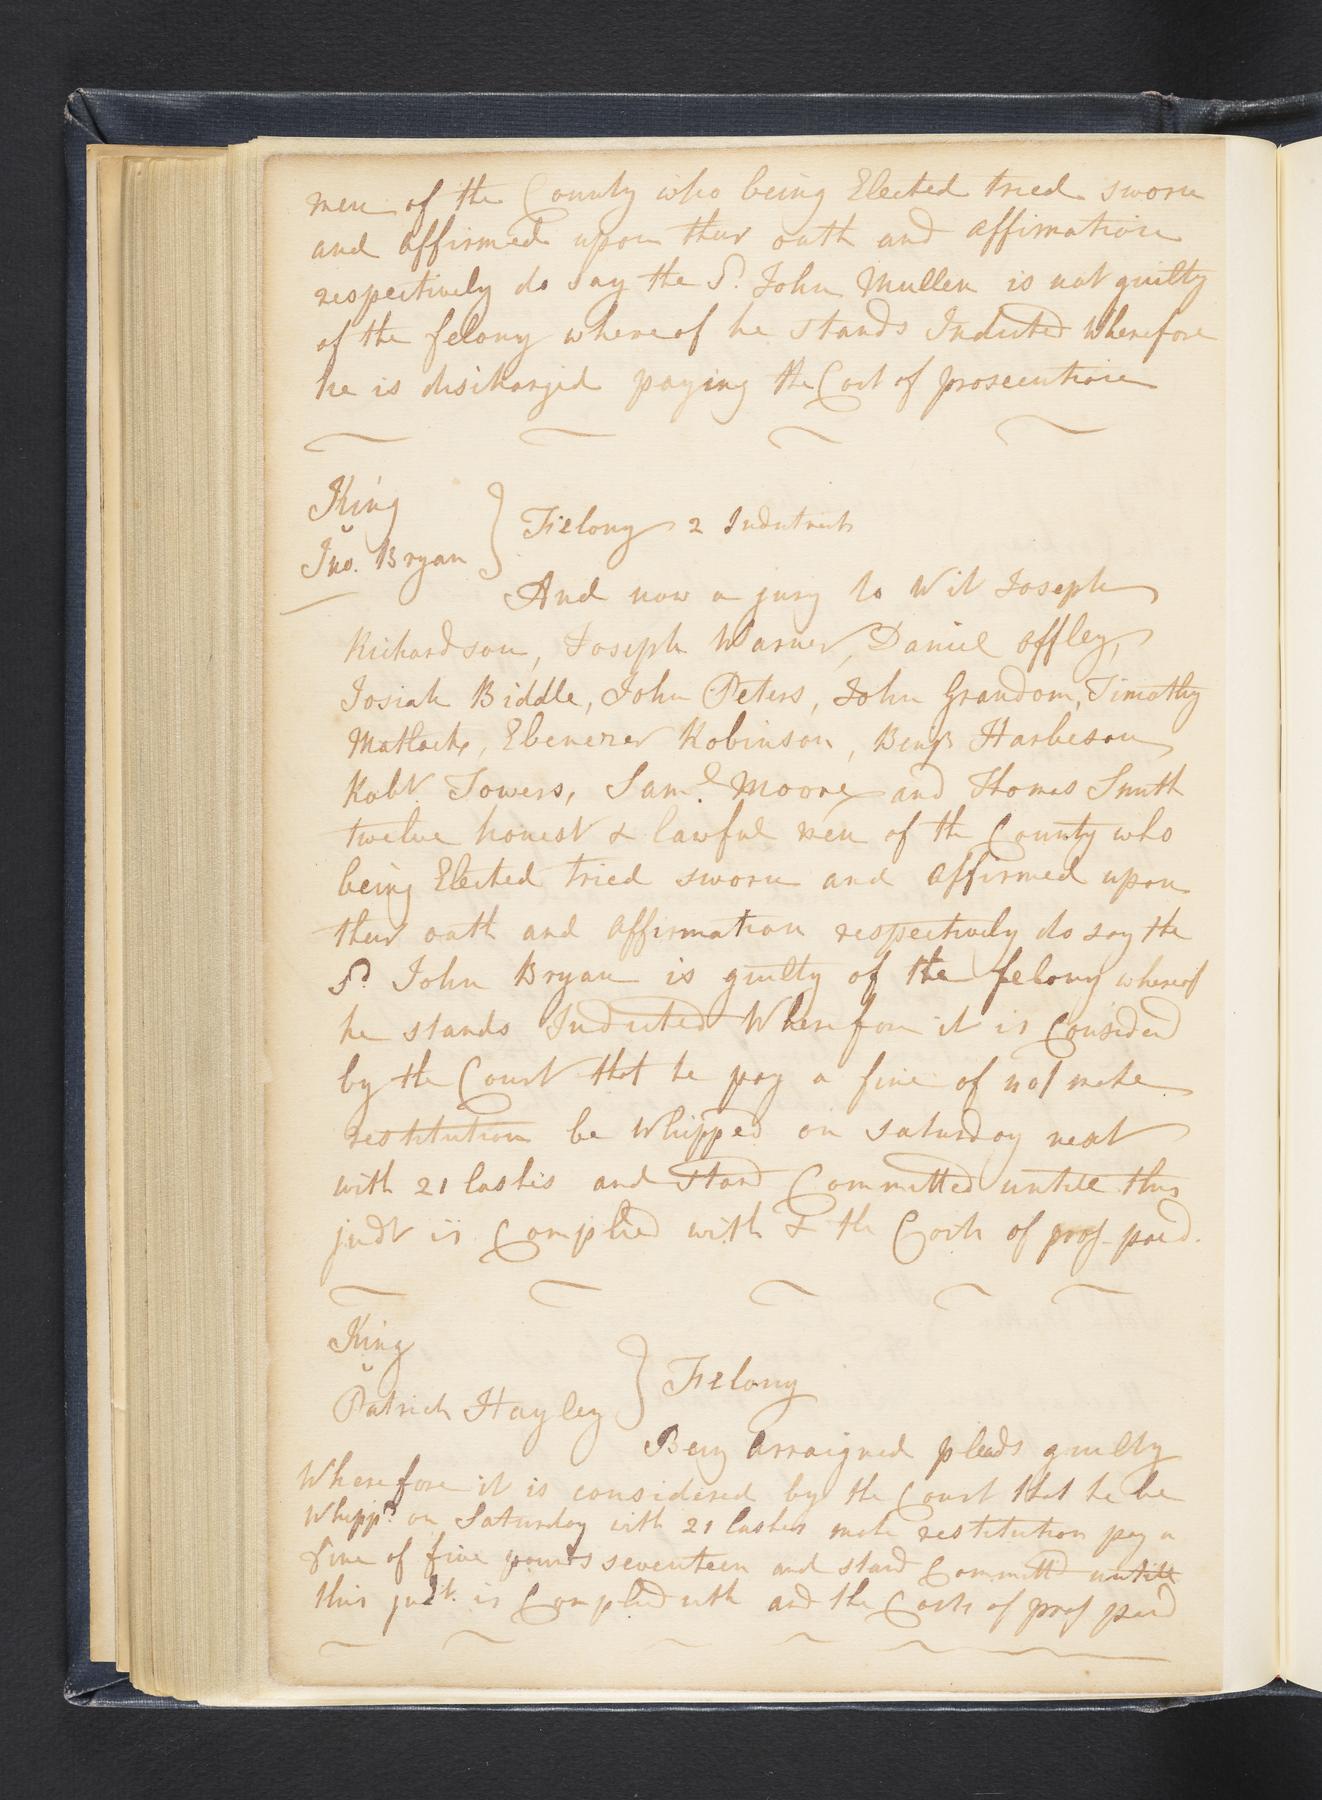 men of the County who being Elected tried sworn
and affirmed upon their oath and affirmation
respectively do say the Sd. John Mullen is not guilty
of the felony whereof he stands Indicted Wherefore
he is discharged paying the Cost of prosecution
King
v
Jno. Bryan } Felony 2 Indictmts
And now a jury to Wit Joseph
Richardson, Joseph Warner, Daniel Offley,
Josiah Biddle, John Peters, John Grandom, Timothy
Matlack, Ebenezer Robinson, Benja Harbeson
Robt Towers, Saml. Moore and Thomas Smith
twelve honest & lawful men of the County who
being Elected tried sworn and affirmed upon
their oath and affirmation respectively do say the
Sd. John Bryan is guilty of the felony whereof
he stands Indicted Wherefore it is Considerd
by the Court that he pay a fine of make
restitution be Whipped on Saturday next
with 21 lashes and stand Committed untill this
judt is Complied with & the Costs of pros. paid.
King
v
Patrick Hayley } Felony
Being arraigned pleads guilty
Wherefore it is considered by the Court that he be
Whippd. on Saturday with 21 lashes make restitution pay a
fine of five pounds seventeen and stand Committd untill
this judt. is Complied with and the Costs of pros paid